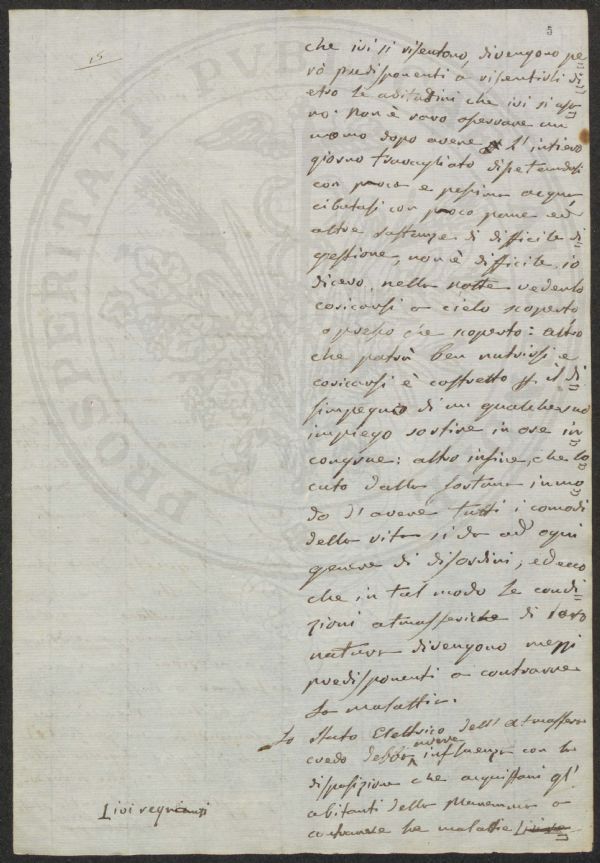 15
5
che ivi si risentono, divengono pe=
rò predisponenti a risentirli di=
etro le abitudini che ivi si àn=
no: Non è raro osservare un
uomo dopo avere l'intiero
giorno travagliato disetandosi
con poca e pessima acqua,
cibatosi con poco pane ed
altre sostanze di difficile di=
gestione, non è difficile, io
dicevo, nella notte vederlo
coricarsi a cielo scoperto
o presso che scoperto: altro
che patrà ben nutrirsi e
coricarsi è costretto p. il di=
simpegno di un qualche suo
impiego sortire in ore in=
congrue: altro infine, che lo=
cato dalla fortuna in mo=
do d'avere tutti i comodi
della vita si da ad ogni
genere di disordini, ed ecco
che in tal modo le condi=
zioni atmosferiche di loro
natura divengono mezzi
predisponenti a contrarre
la malattia.
Lo stato Elettrico dell'atmosfera
credo debba avere influenza con la
disposizione che acquistani gl'
abitanti della Maremma a
contrarre le malattie
Livi regnanti